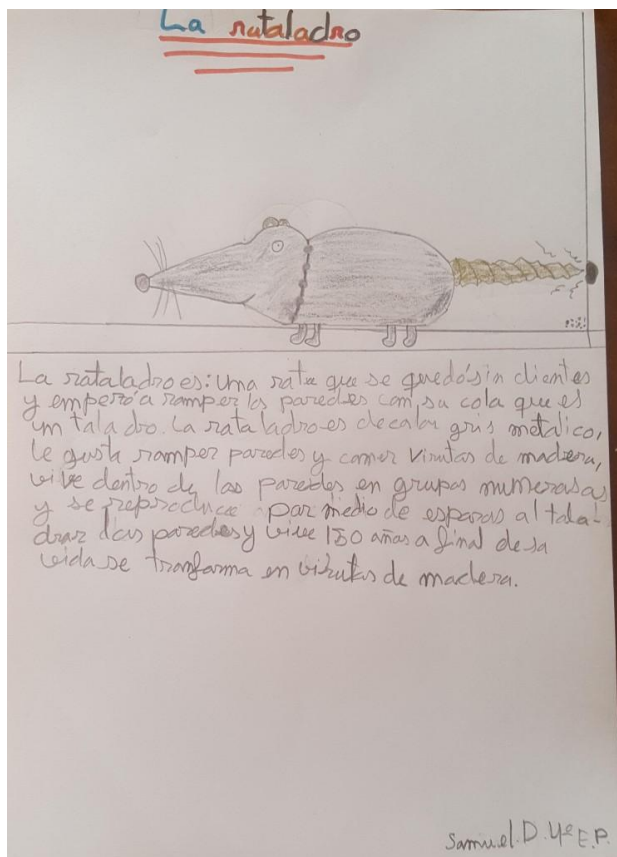 La rataladro
La rataladro es: Una rata que se quedó sin dientes
y emperó a romper las paredes con su cola que es
un taladro. La rataladro es de color gris metálico,
le gusta romper paredes y comer virutas de madera,
vive dentro de las paredes en grupos numerosos
y se reproduce por medio de esporas al tala-
drar las paredes y vive 150 años a final de su
vida se tranforma en virutas de madera.
Samuel. D. 4º E.P.